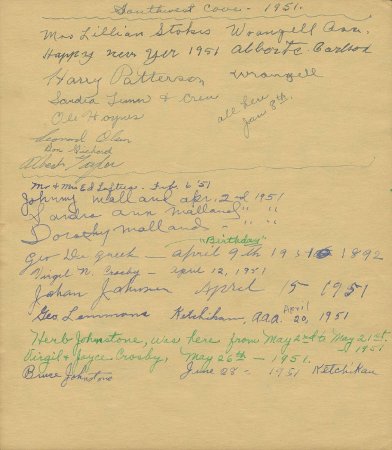 Southwest Cove - 1951.
Mrs Lillian Stokes Wrangell Ann.
Happy new Yer 1951 Albert C. Carlson
Harry Patterson Wrangell
Sandra & Crew
Ole all here
Jan 8th.
Leonard Olsen
Don
Albert Taylor
Mr & Mrs Ed Loftus. Feb. 6 '51
Johnny Malland apr. 2nd 1951
Sandra ann malland " " "
Dorothy malland - " " "
"Birthday"
Geo - april 9th 1951 1892
Virgil N. Crosby - april 12, 1951
Johan Johnsen April 15 1951
Geo. Lemmons Ketchikan, April 20, 1951
Herb Johnstone, was here from May 2nd to May 21st. 1951
Virgil & Joyce Crosby, May 26th - 1951.
Bruce Johnstone June 28 - 1951 Ketchikan